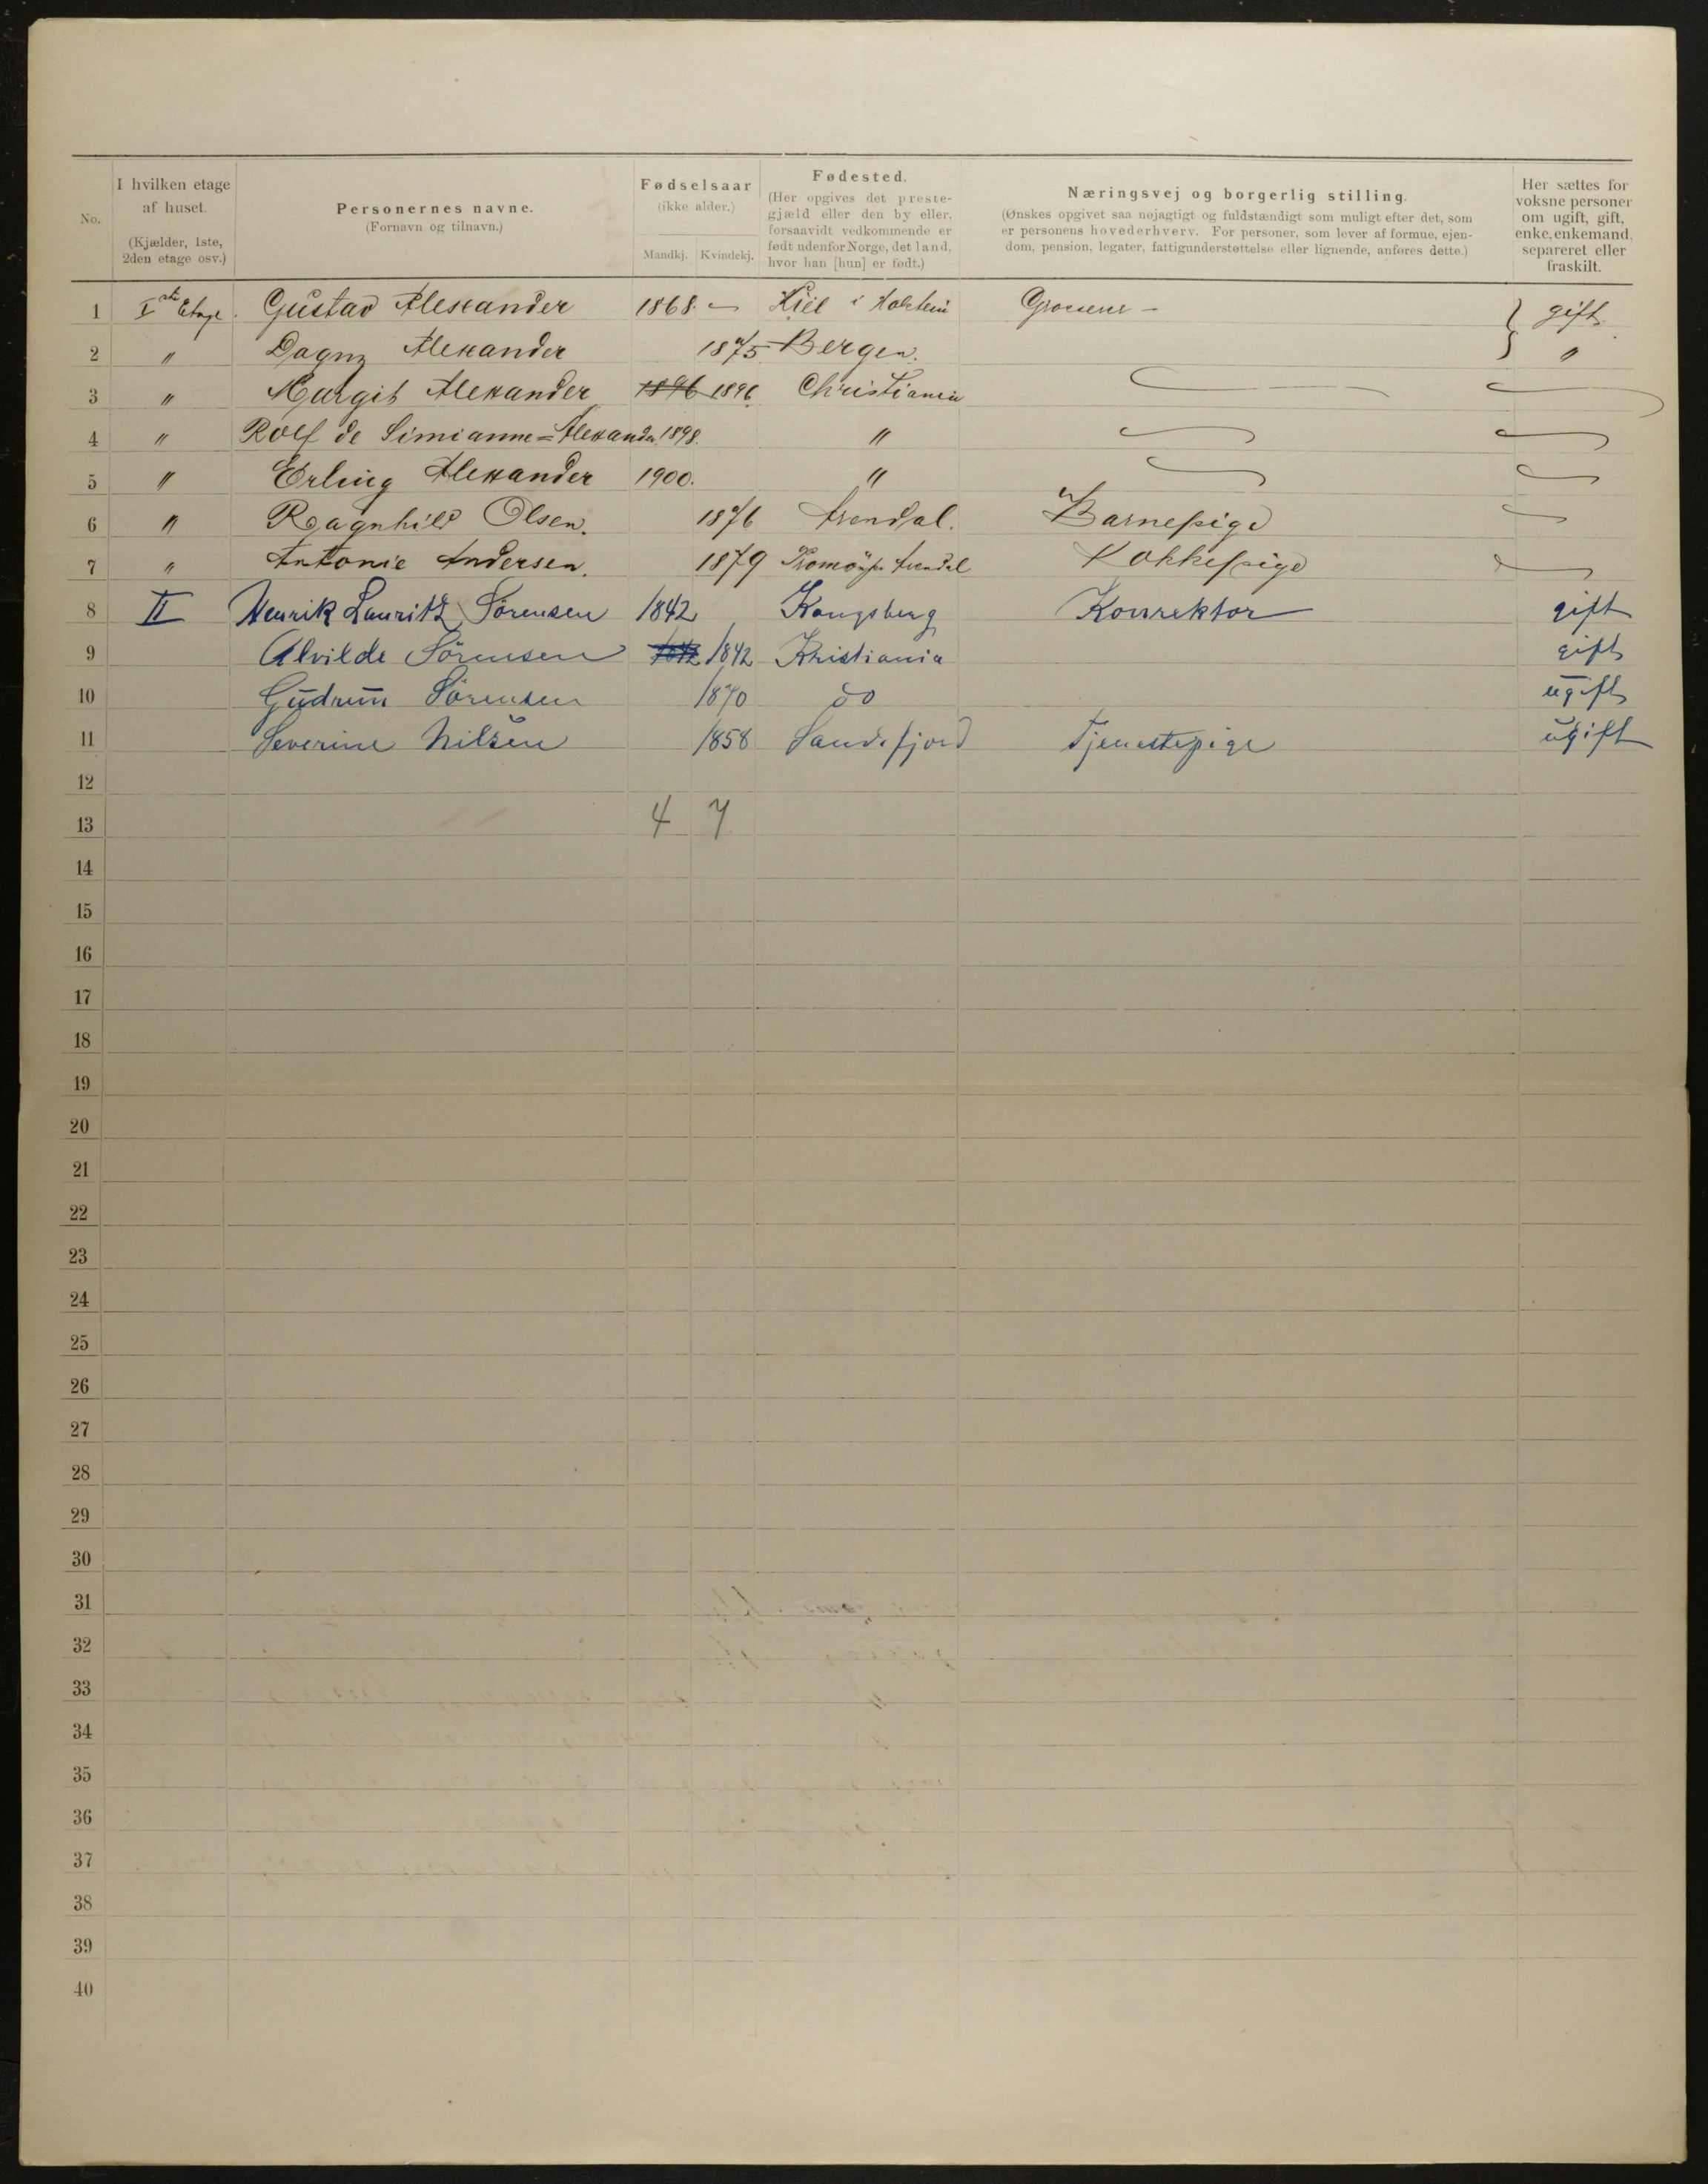 No.
I hvilken etage
af huset.
(Kjælder, 1ste,
2den etage osv.)
Personernes navne.
(Fornavn og tilnavn.)
Fødselsaar
(ikke alder.)
Mandkj. Kvindekj.
Fødested.
(Her opgives det preste-
gjæld eller den by eller,
forsaavidt vedkommende er
født udenfor Norge, det land,
hvor han [hun] er født.)
Næringsvej og borgerlig stilling.
(Ønskes opgivet saa nøjagtigt og fuldstændigt som muligt efter det, som
er personens hovederhverv. For personer, som lever af formue, ejen-
dom, pension, legater, fattigunderstøttelse eller lignende, anføres dette.)
Her sættes for
voksne personer
om ugift, gift,
enke, enkemand,
separeret eller
fraskilt.
1 I ste Etage. Gustav Alexander 1868. – Kiel i Holstein } gift.
2 " Dagny Alexander 1875 Bergen. "
3 " Margit Alexander 1896 1896 Christiania
4 " Rolf de Simianne=Alexander 1898. "
5 " Erling Alexander 1900. "
6 " Ragnhild Olsen. 1876 Arendal. Barnepige
7 " Antonie Andersen. 1879 Arendal Kokkepige
8 II Henrik Lauritz Sørensen 1842 Kongsberg Konrektor gift
9 Alvilde Sørensen 1842 1842 Kristiania gift
10 Gudrun Sørensen 1870 do ugift
11 Severine Nilsen 1858 Sandefjord Tjenestepige ugift
12
13 4 7
14
15
16
17
18
19
20
21
22
23
24
25
26
27
28
29
30
31
32
33
34
35
36
37
38
39
40